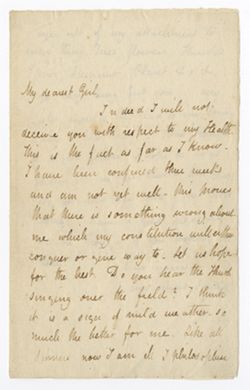 My dearest Girl,
Indeed I will not
deceive you with respect to my Health.
This is the fact as far as I know.
I have been confined three weeks
and am not yet well - this proves
that there is something wrong about
me which my constitution will either
conquer or give way to. Let us hope
for the best. Do you hear the Thrush
singing over the field? I think
it is a sign of mild weather - so
much the better for me. Like all
Sinners now I am ill I philosophise